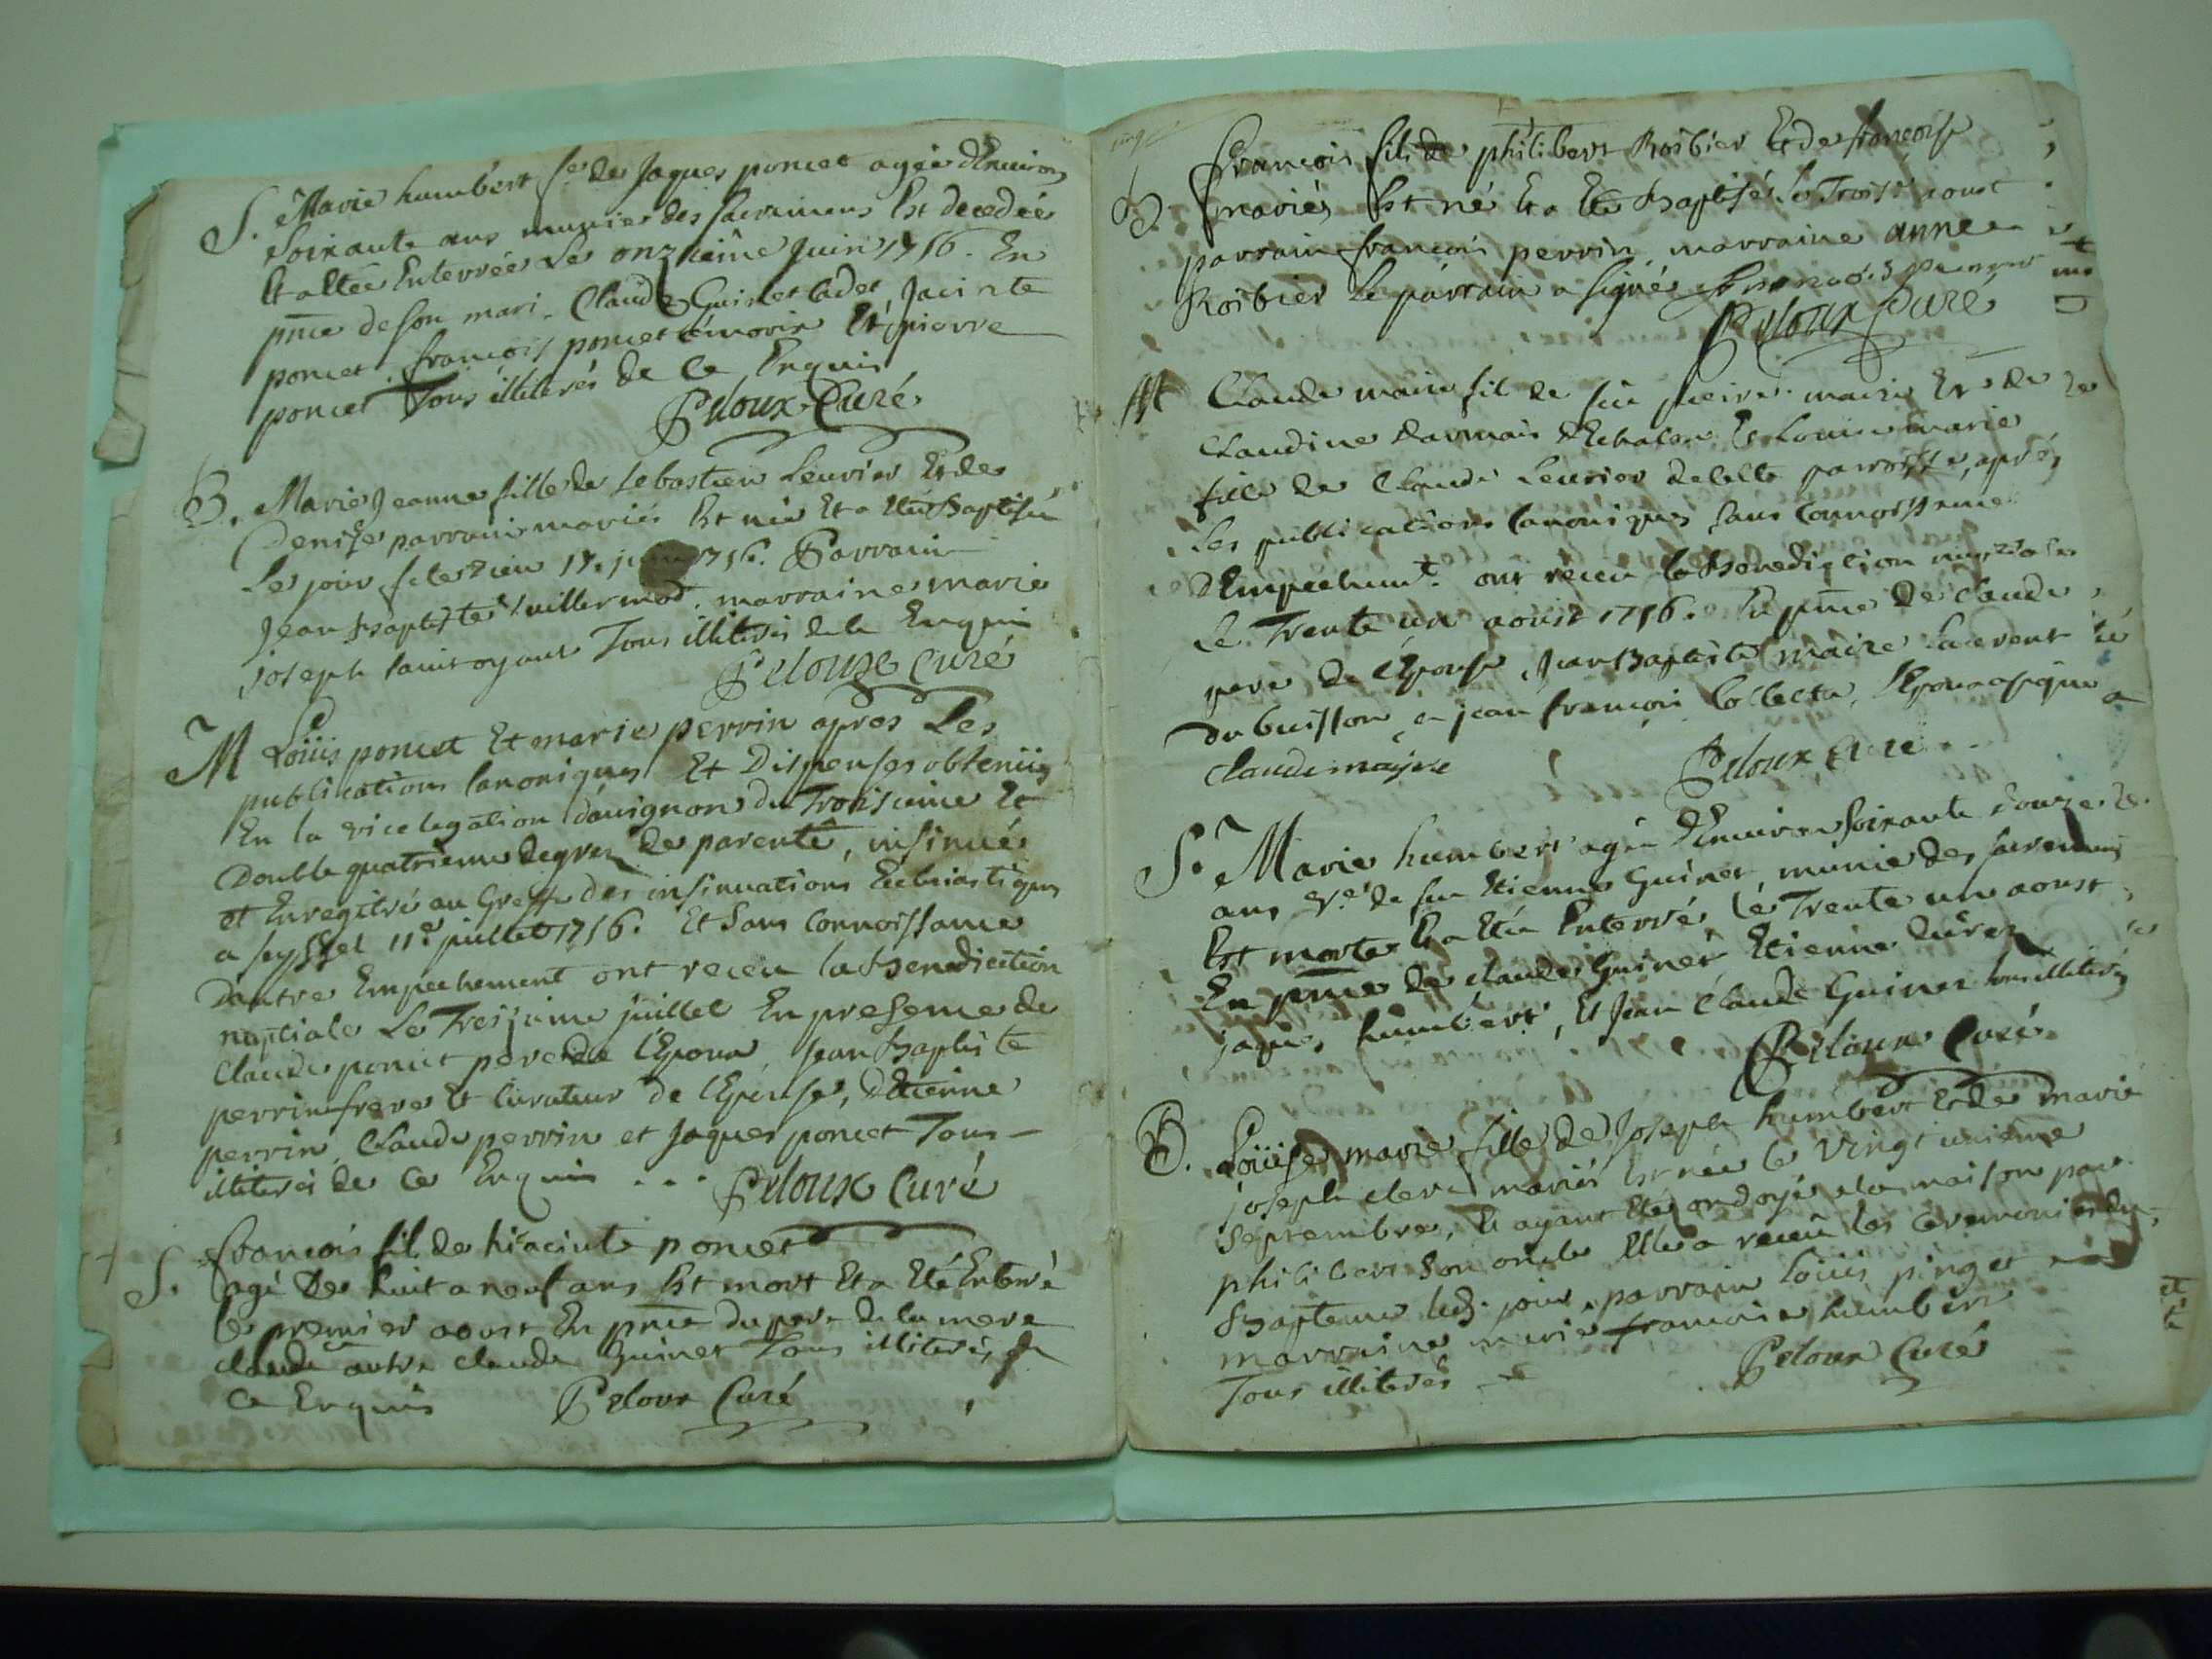 S. Marie humbert fe de Jaques poncet agée d'Environ
Soixante ans munie des sacremens Est decedée
Et a Etée Enterrée Le onzieme Juin 1756. En
pnce de son mari. Claude Guinet Cadet, Jacinte
poncet, françois poncet Et pierre
poncet Tous illiterés de ce Enquis
Peloux Curé
B. Marie Jeanne fille de Sebastien Leurier Et de
Denise mariés Est née Et a Eté Baptisée
Le jour 1756. Parrain
Jean Baptiste vuillermod. marraine marie
joseph Tous illiterés de ce Enquis
Peloux Curé
M Loüis poncet Et marie perrin apres Les
publications Canoniques Et Dispenses obtenües
En la vicelegation d'avignon du Troisieme Et
Double quatrieme degrez de parenté, insinué
et Enregitré au Greffe des insinuations Ecclesiastiques
a seyssel 11e juillet 1756. Et Sans Connoissance
D'autre Empechement ont receu la Benediction
nuptiale Le juillet En presence de
Claude poncet pere de l'Epoux, Jean Baptiste
perrin frere Et Curateur de l'Epouse, d'Etienne
perrin, Claude perrin et Jaques poncet Tous
illiterés de ce Enquis ... Peloux Curé
S. françois fil de hiacinte poncet
agé De huit a neuf ans Est mort Et a Eté Enterré
le premier aoust En pnce du pere de la mere
claude autre claude Guinet Tous illiterés de
Ce Enquis Peloux Curé
B. François fils de philibert Roibier Et de françoise
mariés Est né Et a Eté Baptisé Le Trois aoust
parrain françois perrin, marraine anne
Roibier Le parrain a signé
Peloux Curé
M Claude maire fil de feu pierre maire Et de
Claudine d'Echalon Et Louise marie
fille de Claude Leurier de cette paroisse, après
Les publications Canoniques Sans Connoissance
d'Empechemt. ont receu la Benediction nuptiale
Le Trente un aoust 1756. En pnce de Claude
pere de l'Epouse, Jean Baptiste maire Laurent
du buisson, et jean françois Collecta, l'Epoux a signé
Claude mayre Peloux Curé
S. Marie humbert agée d'Environ Soixante Douze
ans ve de feu Etienne Guinet, munie des sacremens
Est morte Et a Etée Enterrée Le Trente un aoust
En pnce de claude Guinet Etienne
jaques humbert, Et Jean Claude Guinet illiterés
Peloux Curé
B. Loüise marie fille de Joseph humbert Et de marie
joseph clerc mariés Est née le Vingt unieme
Septembre, Et ayant Eté ondoyée a la maison par
philibert Son oncle Elle a receu les Ceremonies du
Bapteme led. jour. parrain Loüis pinget
marraine marie françoise humbert
Tous illiterés
Peloux Curé